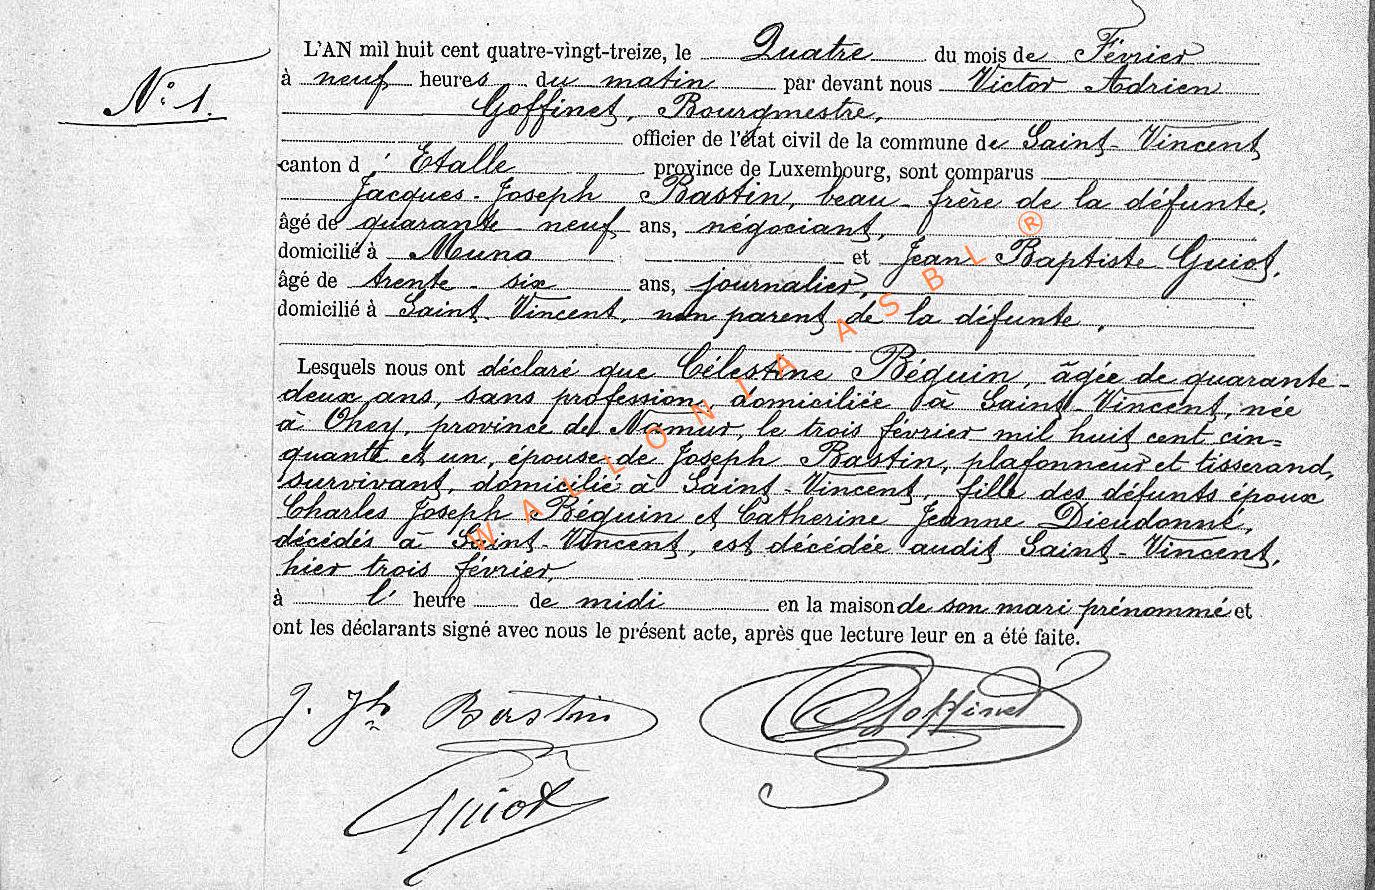 L'AN mil huit cent quatre-vingt-treize, le Quatre du mois de Février
N.° 1.
à neuf heures du matin par devant nous Victor Adrien
Goffinet, Bourgmestre,
officier de l'état civil de la commune de Saint-Vincent
canton d'Etalle province de Luxembourg, sont comparus
Jacques-Joseph Bastin, beau-frère de la défunte,
âgé de quarante neuf ans, négociant,
domicilié à Muno et Jean Baptiste Guiot,
âgé de trente-six ans, journalier,
domicilié à Saint-Vincent, non parent de la défunte,
Lesquels nous ont déclaré que Célestine Béguin, âgée de quarante-
deux ans, sans profession, domiciliée à Saint-Vincent, née
à Ohey, province de Namur, le trois février mil huit cent cin=
quante et un, épouse de Joseph Bastin, plafonneur et tisserand,
survivant, domicilié à Saint-Vincent, fille des défunts époux
Charles Joseph Béguin et Catherine Jeanne Dieudonné,
décédés à Saint-Vincent, est décédée audit Saint-Vincent,
hier trois février,
à l' heure de midi en la maison de son mari prénommé et
ont les déclarants signé avec nous le présent acte, après que lecture leur en a été faite.
J. Jh Bastin
Goffinet
Guiot
WALLONIA ASBL ®